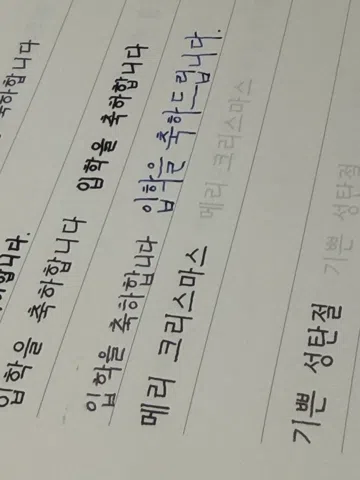 축하합니다
합니다.
입학을 축하합니다
입학을 축하합니다
입학을 축하합니다 입학을 축하드립니다.
메리 크리스마스 메리 크리스마스
기쁜 성탄절 기쁜 성탄절